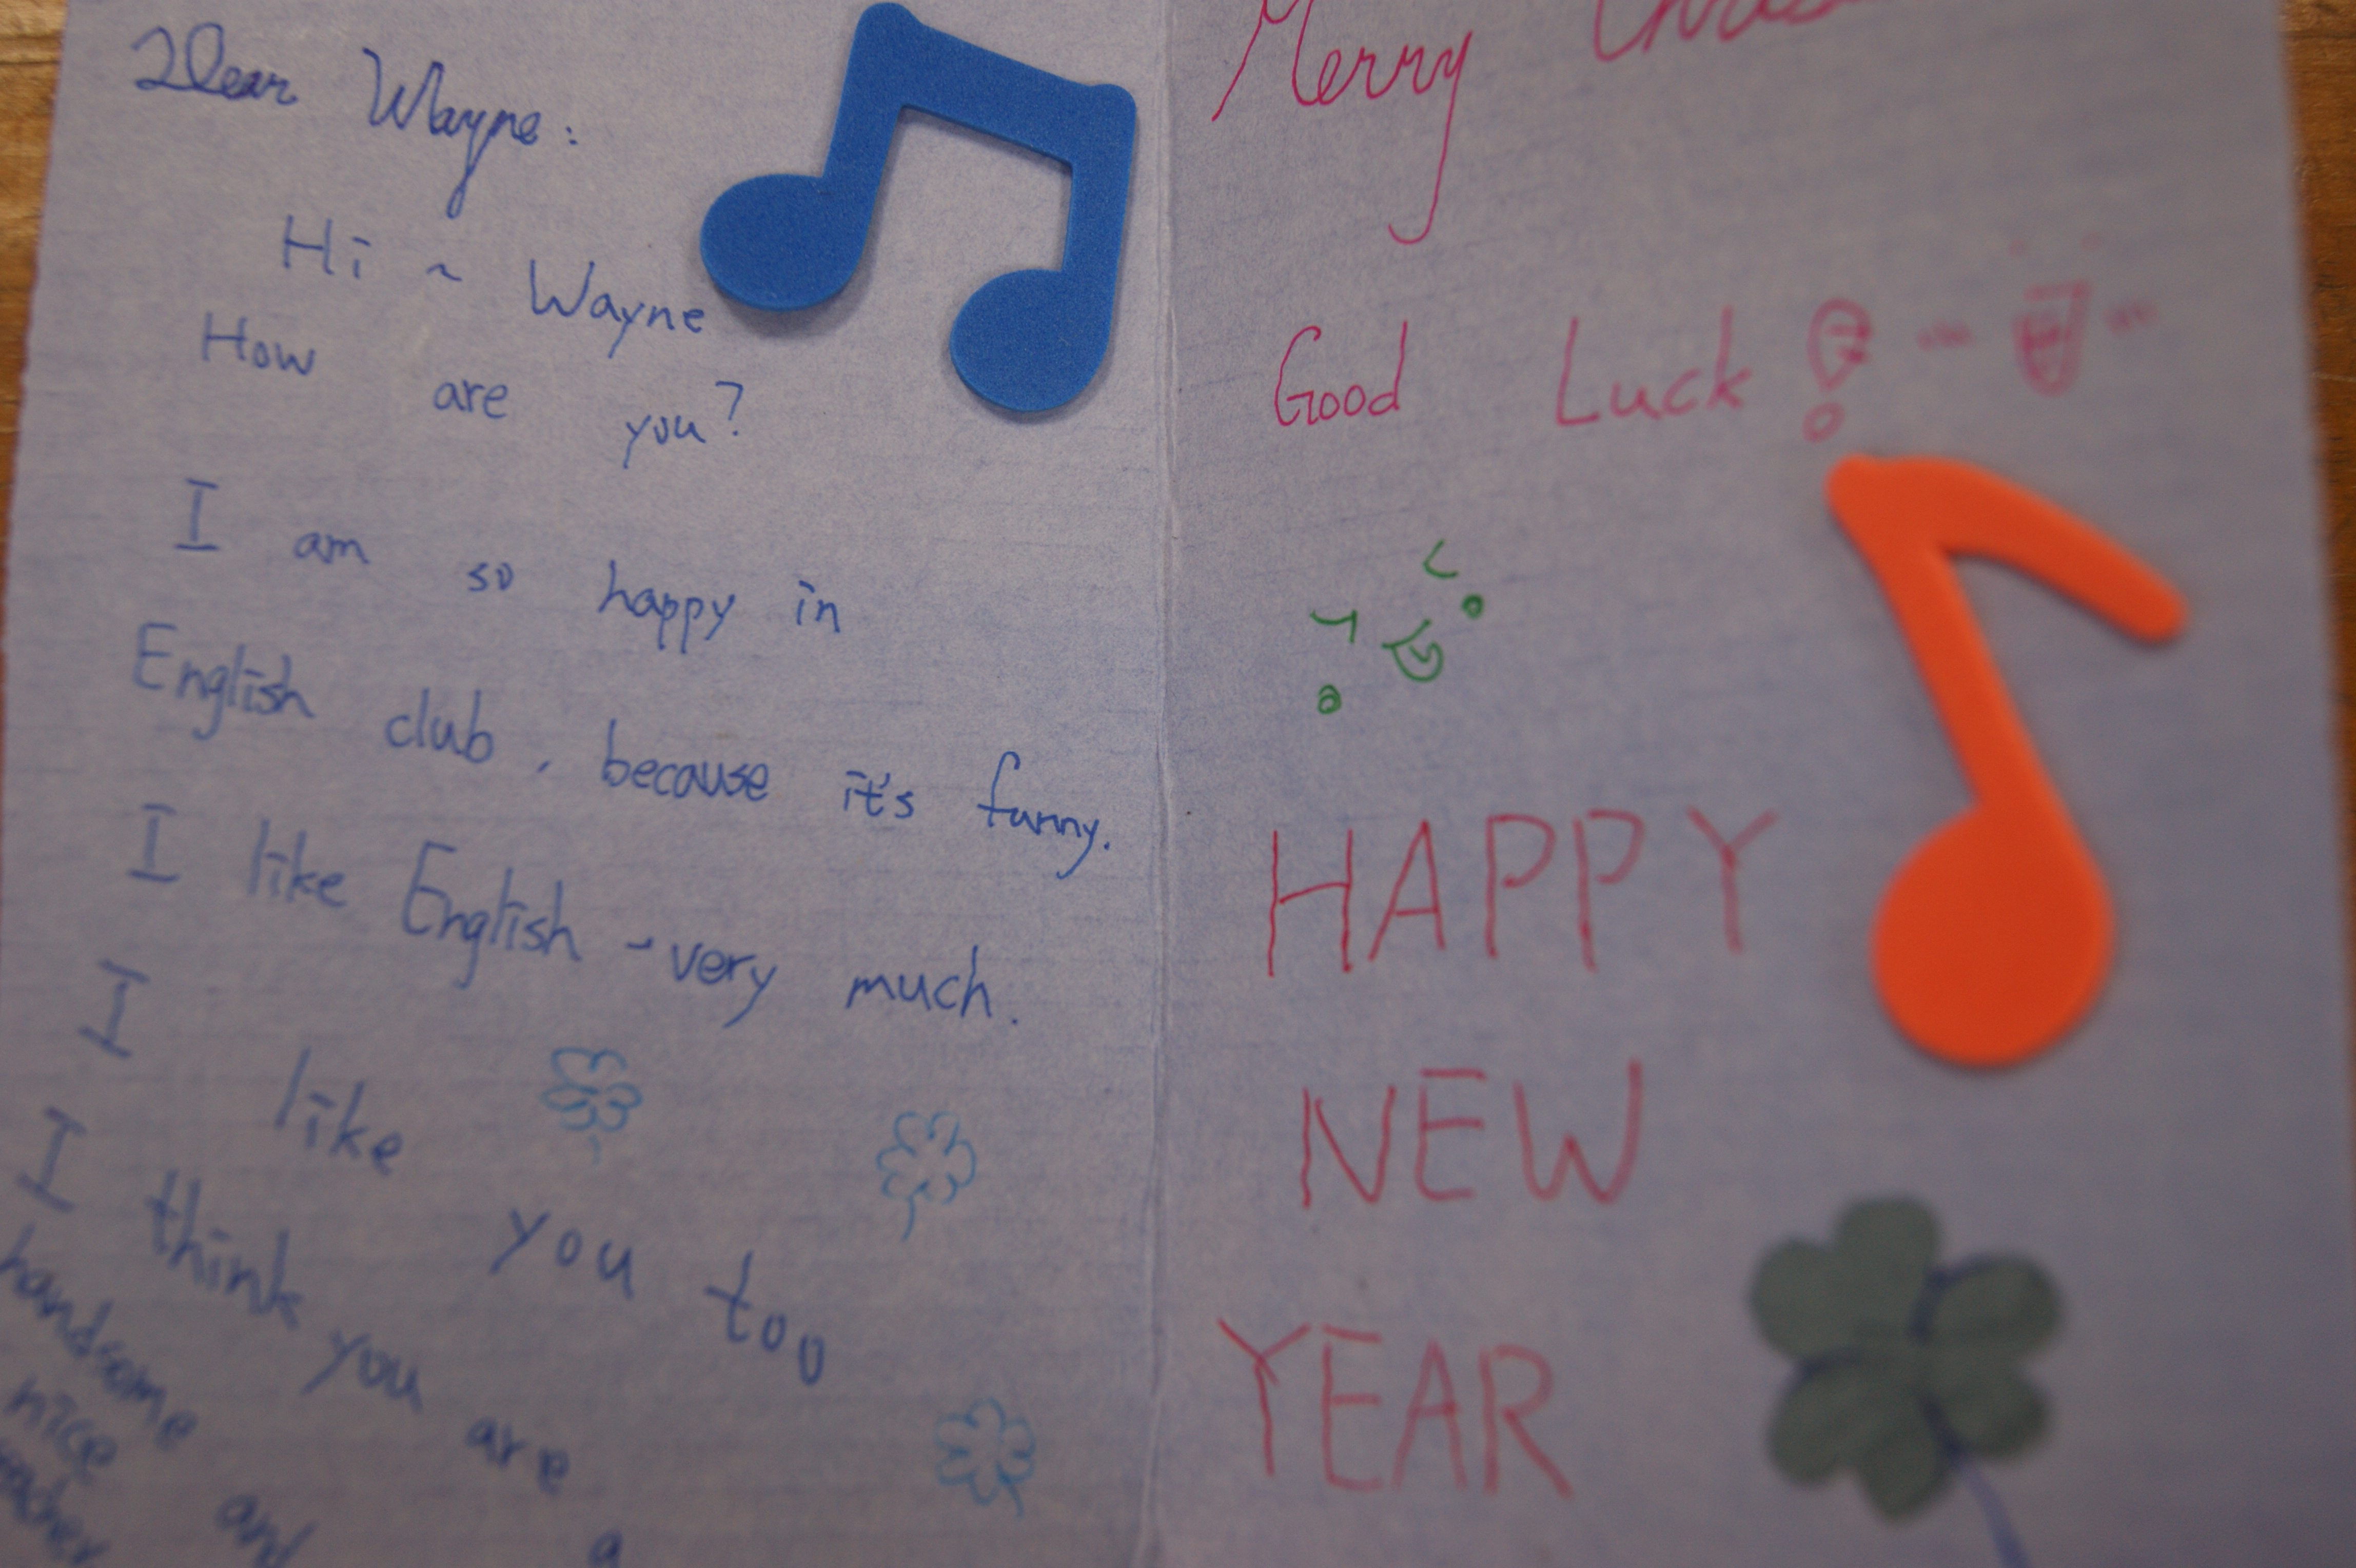 Dear Wayne:
Hi ~ Wayne
How are you?
I am so happy in
English club, because it's funny.
I like English very much.
I like you too
I think you are a
handsome and
nice
Merry
Good Luck
HAPPY
NEW
YEAR